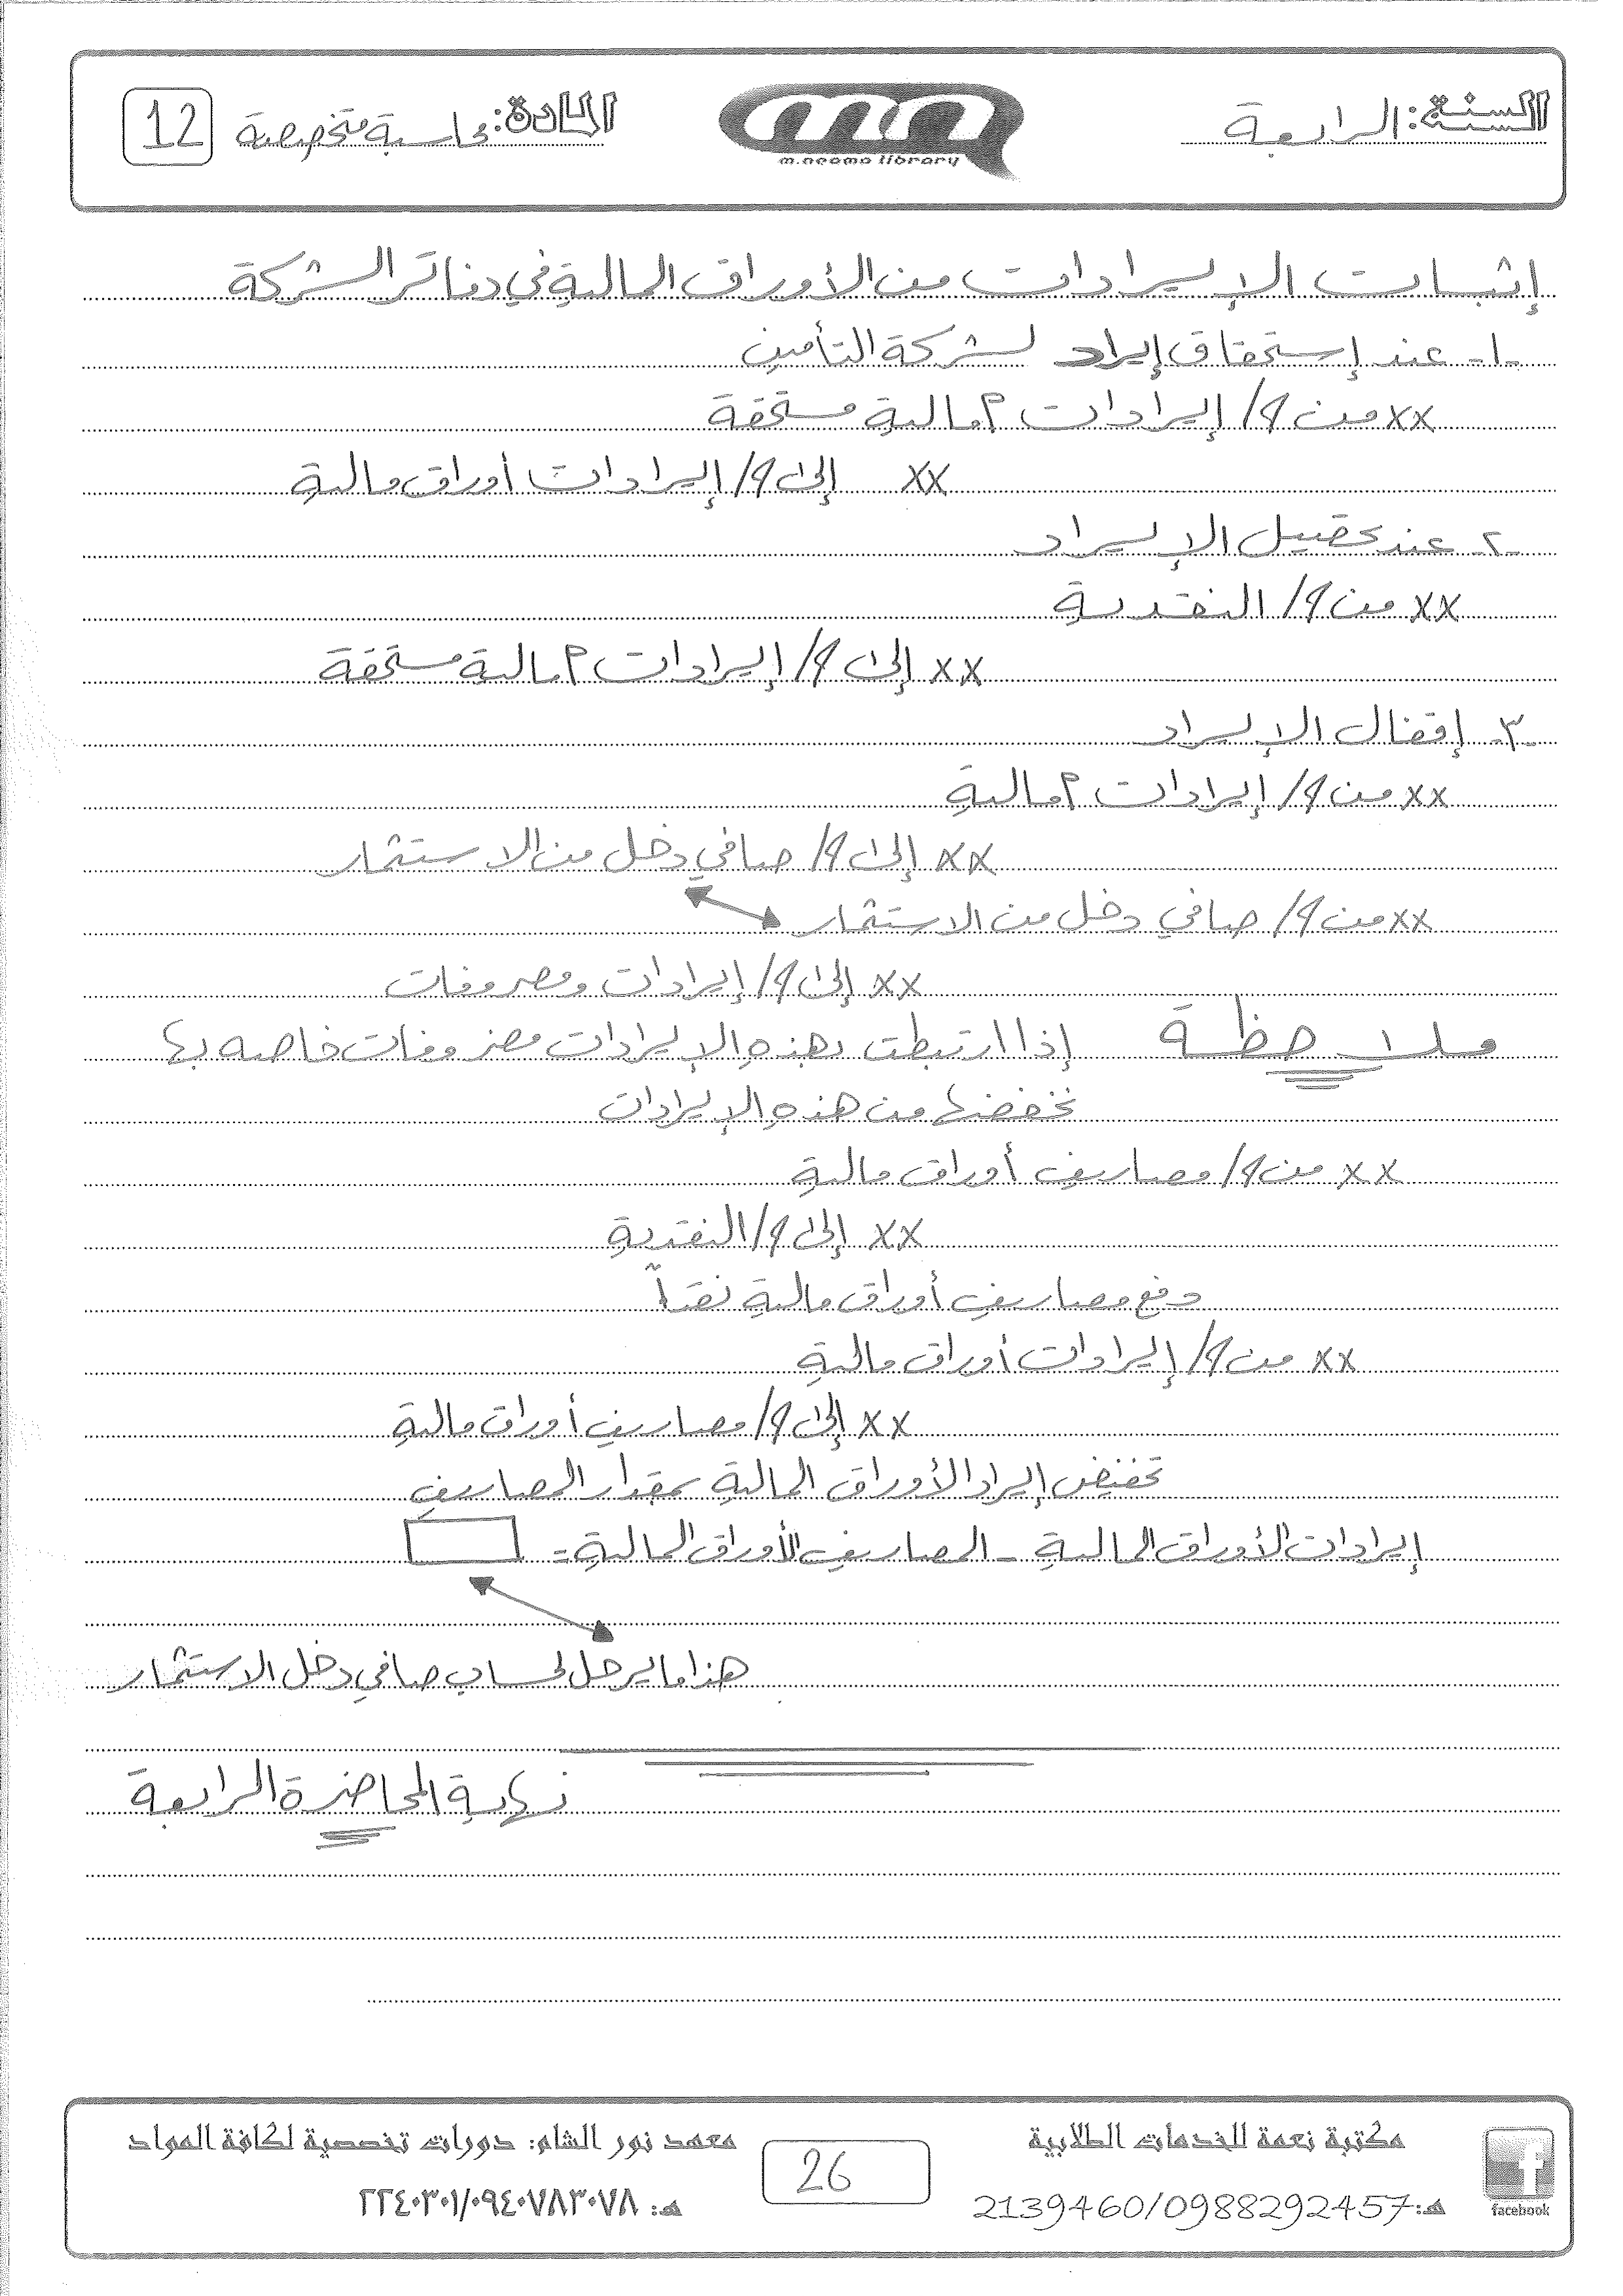 السنة: الرابعة
m.neama library
المادة: محاسبة متخصصة
12
إثبات الإيرادات من الأوراق المالية في دفاتر الشركة
-1- عند إستحقاق إيراد لشركة التأمين
xx من ح/ إيرادات أ مالية مستحقة
xx إلى ح/ إيرادات أوراق مالية
-٢- عند تحصيل الإيراد
xx من ح/ النقدية
xx إلى ح/ إيرادات أ مالية مستحقة
-٣- إقفال الإيراد
xx من ح/ إيرادات أ مالية
xx إلى ح/ صافي دخل من الاستثمار
xx من ح/ صافي دخل من الاستثمار
xx إلى ح/ إيرادات ومصروفات
ملاحظة إذا ارتبطت بهذه الإيرادات مصروفات خاصه بها
نخفضها من هذه الإيرادات
xx من ح/ مصاريف أوراق مالية
xx إلى ح/ النقدية
دفع مصاريف أوراق مالية نقداً
xx من ح/ إيرادات أوراق مالية
xx إلى ح/ مصاريف أوراق مالية
تخفيض إيراد الأوراق المالية بمقدار المصاريف
إيرادات الأوراق المالية - المصاريف الأوراق المالية =
هذا ما يرحل لحساب صافي دخل الاستثمار
نهاية المحاضرة الرابعة
مكتبة نعمة للخدمات الطلابية
هـ: 2139460/0988292457
facebook
26
معهد نور الشام: دورات تخصصية لكافة المواد
هـ: ٢٢٤٠٣٠١/٠٩٤٠٧٨٣٠٧٨